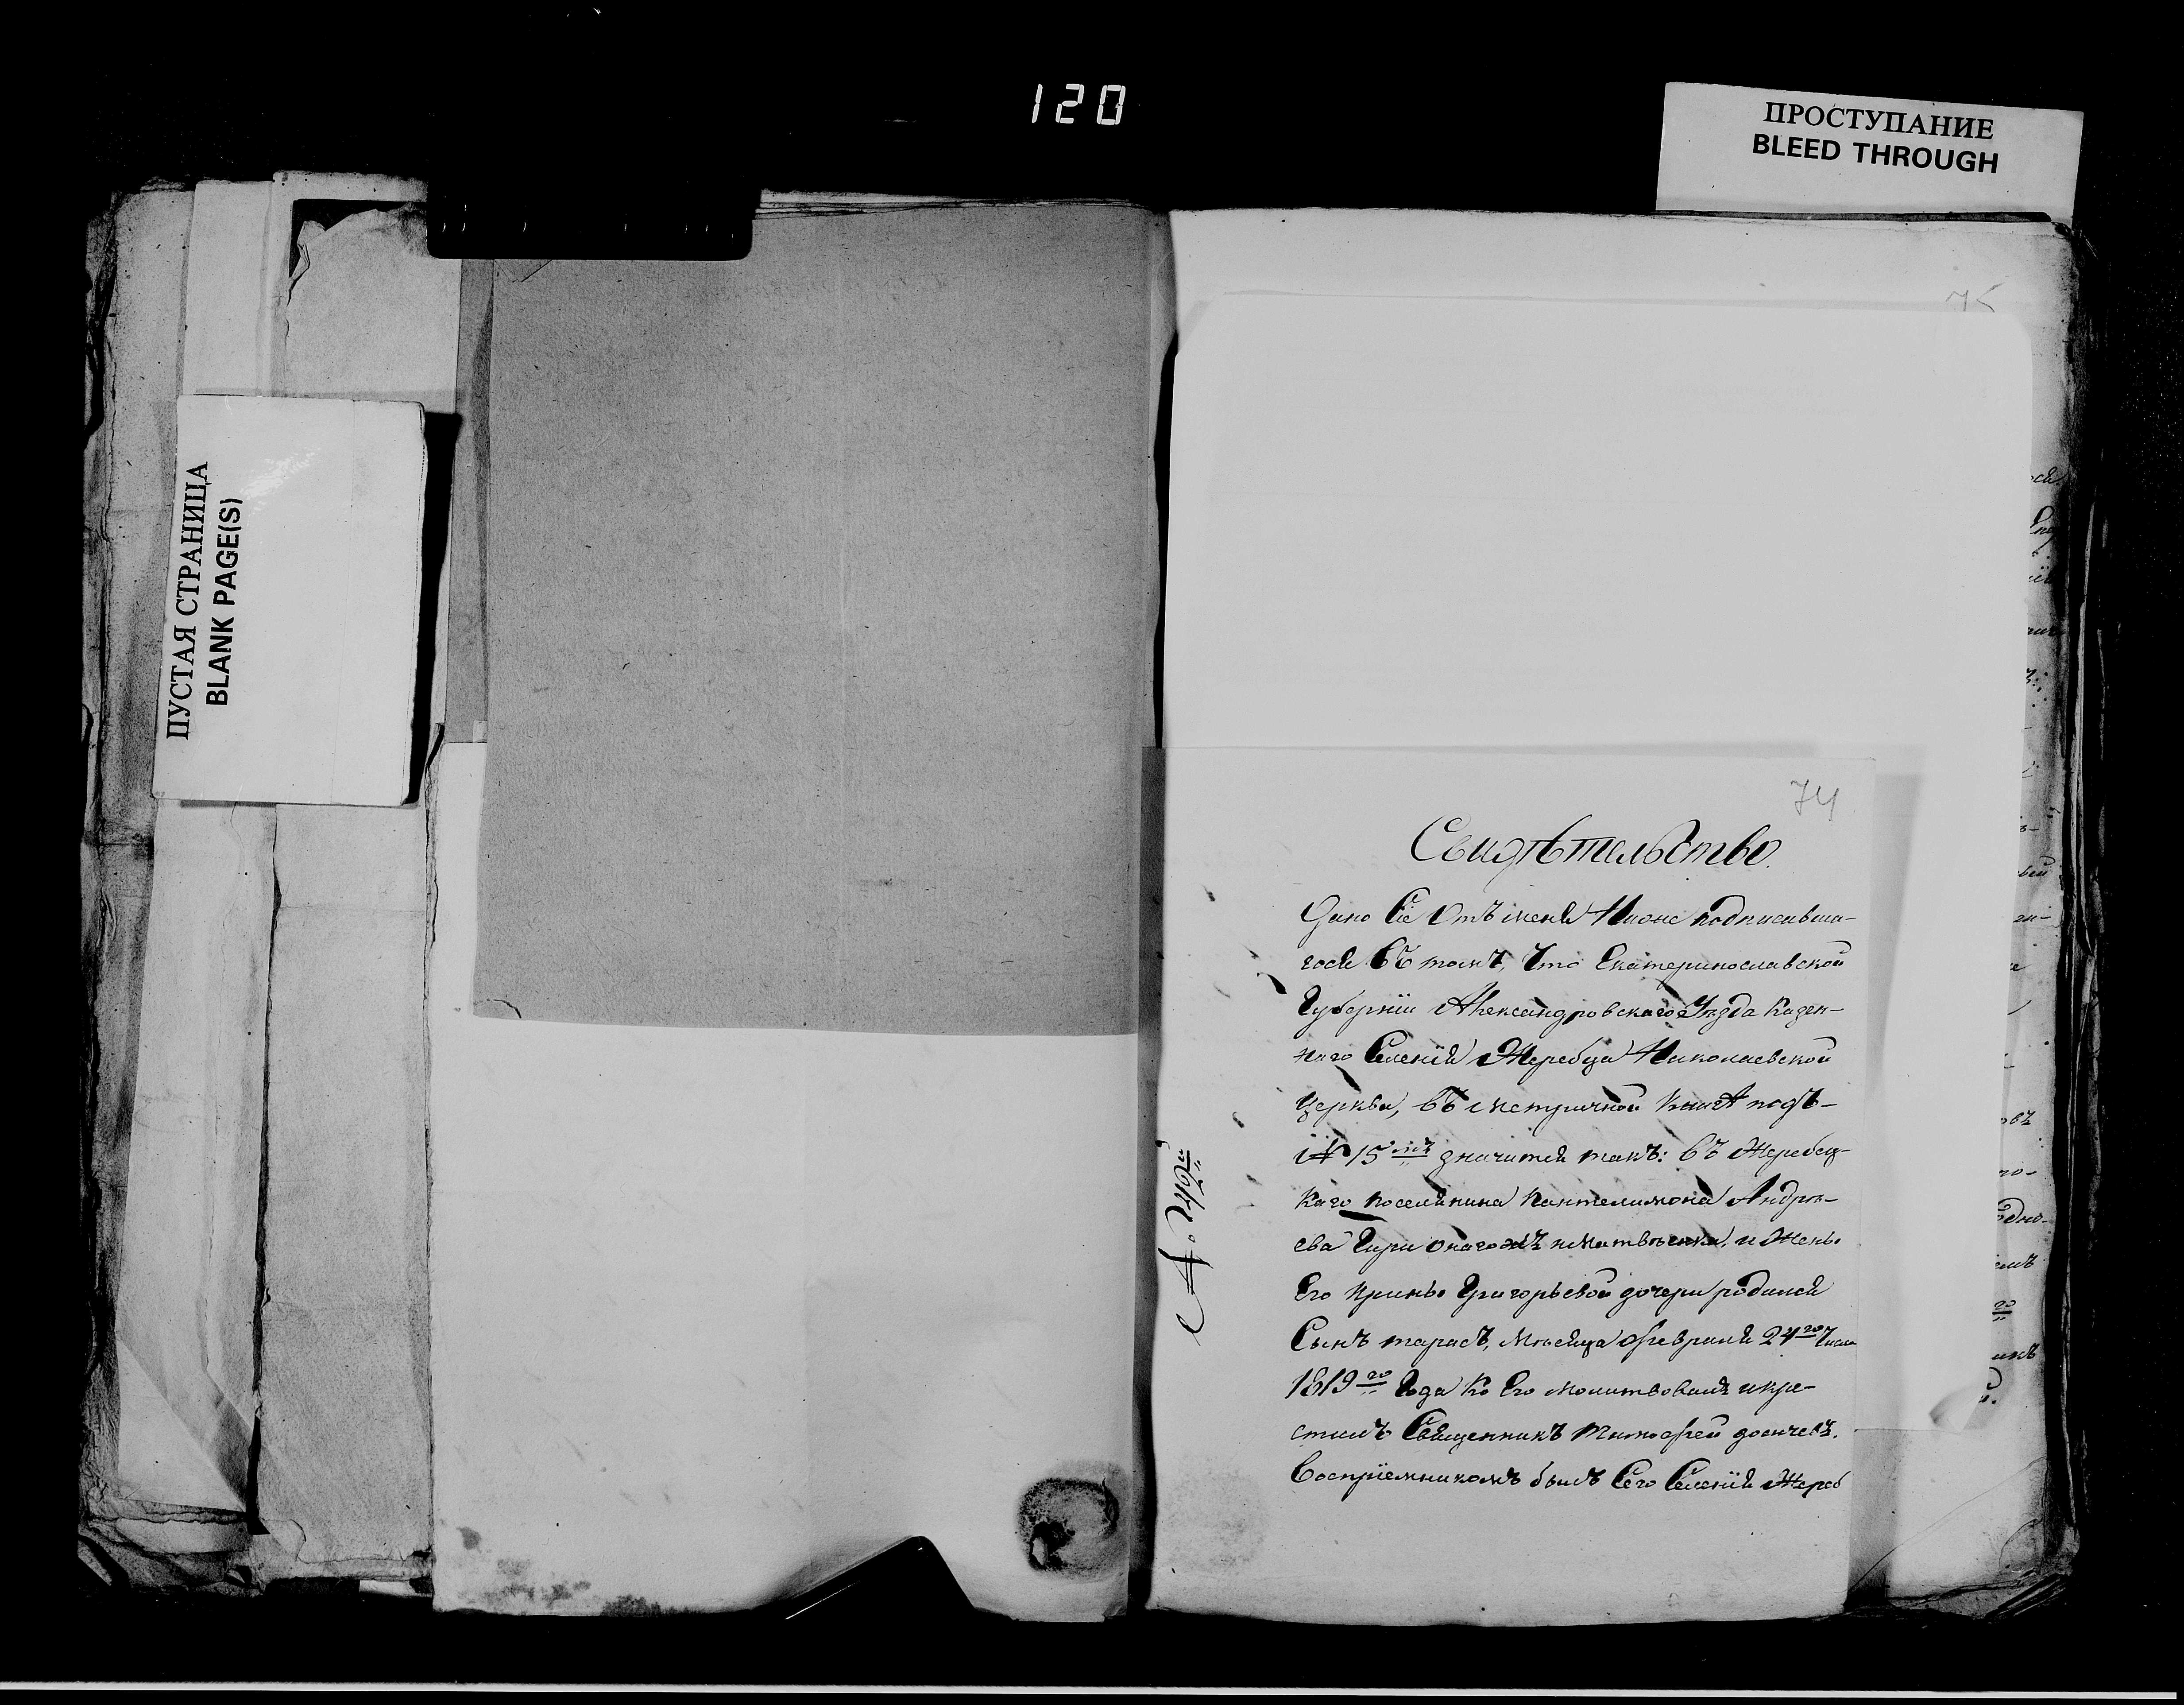 120
ПРОСТУПАНИЕ
BLEED THROUGH
ПУСТАЯ СТРАНИЦА
BLANK PAGE(S)
75
74
Свидѣтельство
Дано Сіе Отъ меня Ниже подписавша-
гося Въ томъ, Что Екатеринославской
Губерніи Александровскаго Уѣзда Казен-
наго Селенія Жеребца Николаевской
Церкви, въ метричной Книгѣ подъ-
№ 15мъ значится такъ: въ Жеребец-
каго поселянина Пантелимона Андрѣ-
ева Гири онагожъ и Матвѣенка, и Жены
Его Ирины Григорьевой дочери родился
Сынъ тарасъ, Мѣсяца Февраля 24го Числа
1819го Года Ко Его молитвовалъ икре-
стилъ Священникъ Тимофей
Воспріемникомъ былъ Сего Селенія Жереб